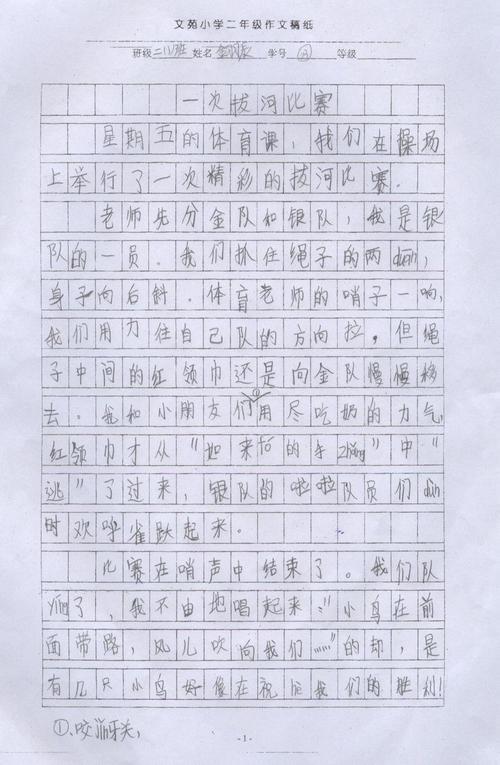 文苑小学二年级作文稿纸
班级二(1)班 姓名 学号 等级
一次拔河比赛
星期五的体育课,我们在操场
上举行了一次精彩的拔河比赛.
老师先分金队和银队,我是银
队的一员。我们抓住绳子的两duān,
身子向后斜.体育老师的哨子一响,
我们用力往自己队的方向拉,但绳
子中间的红领巾还是向金队慢慢移
去.我和小朋友们①用尽吃奶的力气,
红领巾才从“如来佛的手zhǎng”中
“逃”了过来,银队的啦啦队员们dùn
时欢呼雀跃起来。
比赛在哨声中结束了。我们队
yíng了,我不由地唱起来:“小鸟在前
面带路,风儿吹向我们……”的却,是
有几只小鸟好像在祝hè我们的胜利!
①、咬yá牙关,
-1-